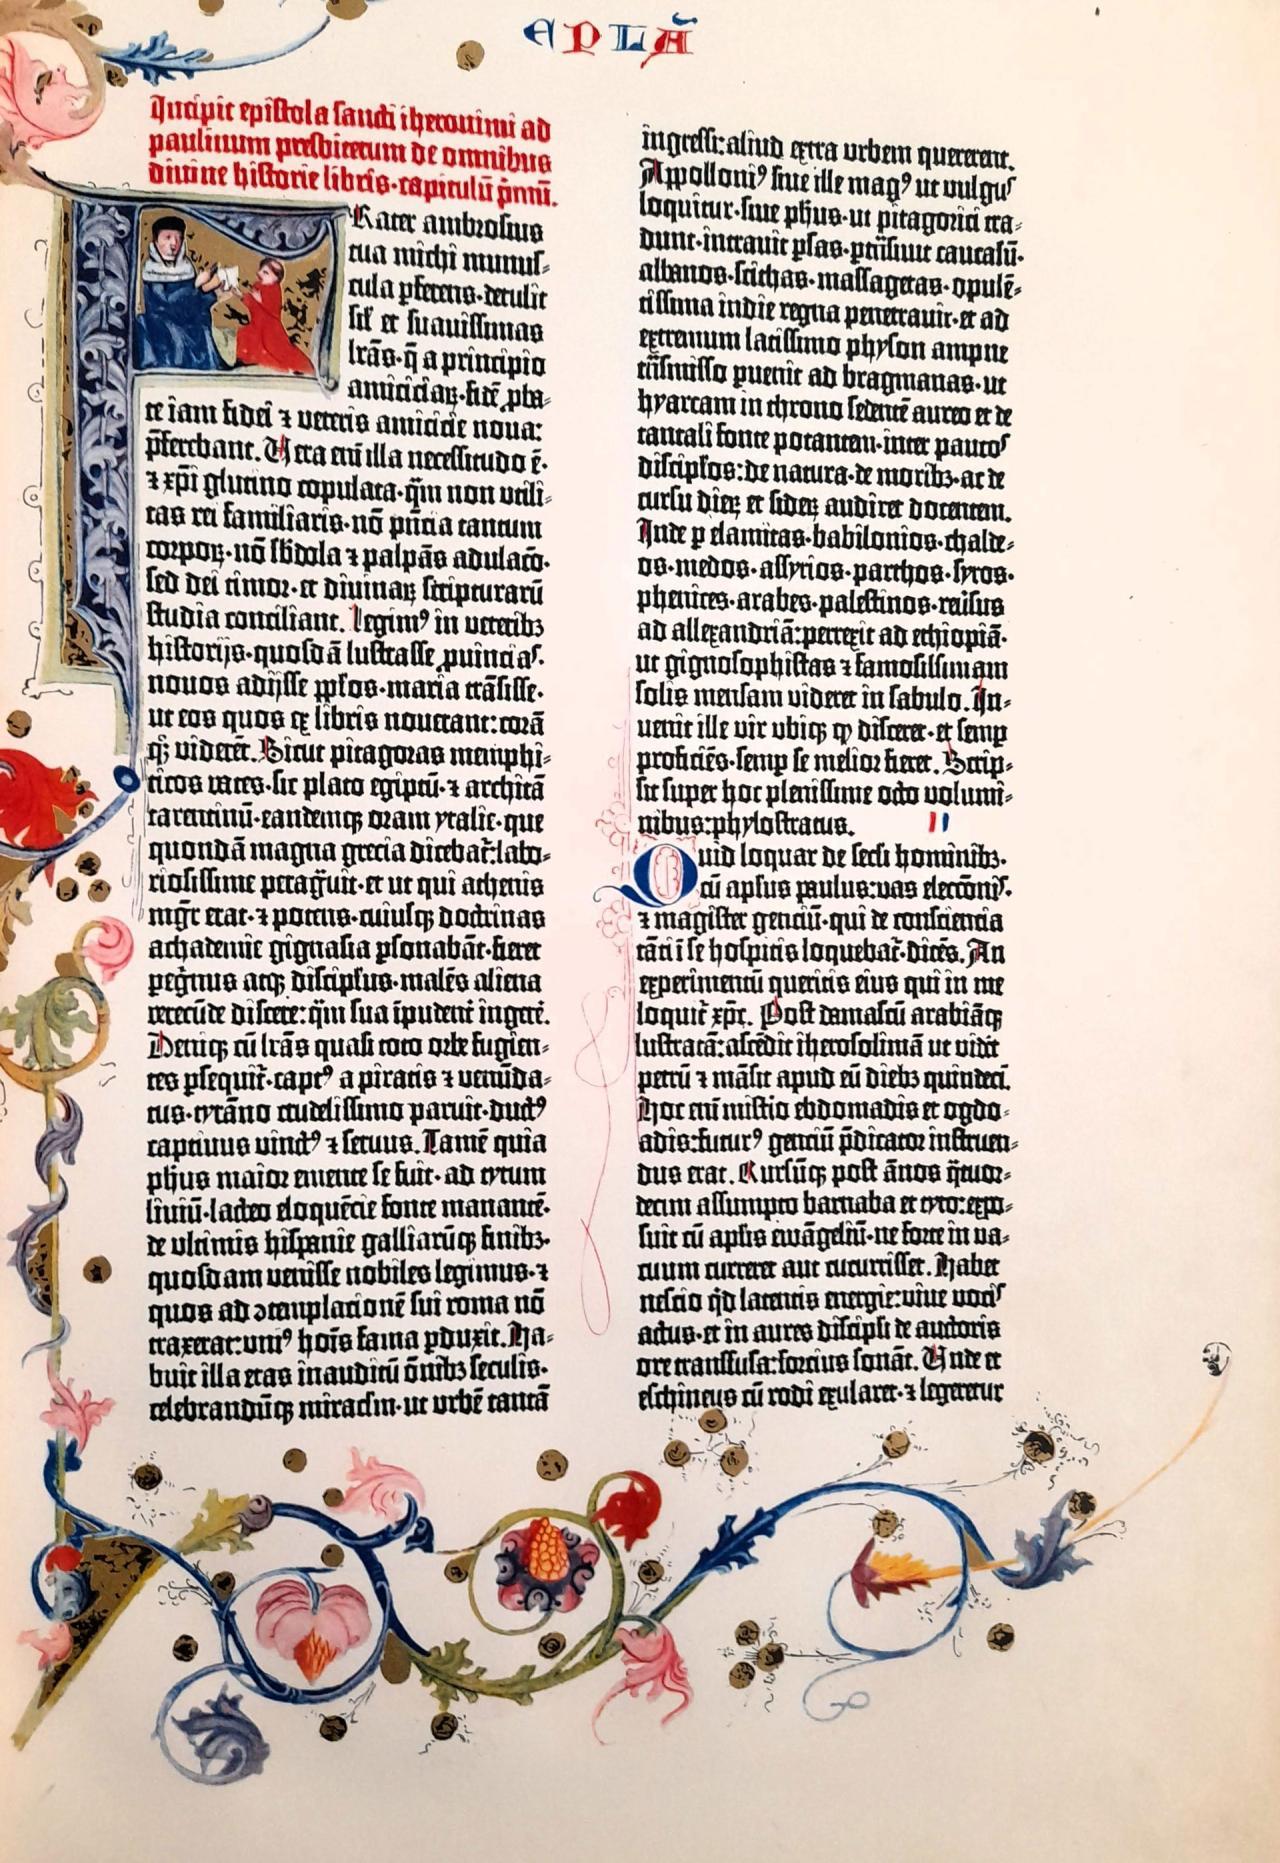 EPLA̅
Incipit epistola sancti iheronimi ad
paulinum presbiterum de omnibus
divine historie libris·capitulū p̄mū.
Frater ambrosius
tua michi munus-
cula pferens·detulit
sił et suavissimas
lrās·q̄ a principio
amiciciaꝝ·fidē ꝓba-
te iam fidei ⁊ veteris amicicie noua:
p̄ferebant. Vera enī illa necessitudo ē·
⁊ xp̄i glutino copulata·q̄m non utili-
tas rei familiaris·nō p̄ncia tantum
corpoꝝ·nō sbdola ⁊ palpās adulacō·
sed dei timor·et diuinaꝝ scripturarū
studia conciliant. Legimꝰ in veteribꝫ
historijs·quosdā lustrasse ꝓuincias·
nouos adijsse ꝓplos·maria trāsisse·
ut eos quos ex libris nouerant: corā
qꝫ viderēt. Sicut pitagoras memphi-
ticos vates·sic plato egiptū·⁊ architā
tarentinū·eandemqꝫ oram ytalie·que
quondā magna grecia dicebat̄: labo-
riosissime peragᷓuit·et ut qui athenis
mgr̄ erat·⁊ potens·cuiusqꝫ doctrinas
achademie gignasia psonabāt·fieret
peg̓nus atqꝫ disciplus·malēs aliena
verecūde discere: q̄m sua īpudent̓ ingere̓.
Deniqꝫ cū lrās quasi toto orbe fugien-
tes psequit̄·captꝰ a piratis ⁊ venūda-
tus·tyrāno crudelissimo paruit·ductꝰ
captiuus vinctꝰ ⁊ seruus. Tamē quia
phūs maior emente se fuit·ad tytum
liuiū·lacteo eloquēcie fonte manantē·
de ultimis hispanie galliarūqꝫ finibꝫ·
quosdam venisse nobiles legimus·⁊
quos ad ↄtemplacionē sui roma nō
traxerat: uniꝰ hoīs fama pduxit. Ha-
buit illa etas inauditū om̄ibꝫ seculis·
celebrandūqꝫ miraclm·ut urbē tantā
ingressi: aliud extra urbem quererent.
Apolloniꝰ siue ille magꝰ ut vulgus
loquitur·siue phūs·ut pitagorici tra-
dunt·intrauit psas·ptrāsiuit caucasū·
albanos·scithas·massagetas·opulē-
tissima indie regna penetrauit·et ad
extremum latissimo physon ampne
trāsmisso puenit ad bragmanas·ut
hyarcam in throno sedentē aureo et de
tantali fonte potantem·inter paucos
disciplos: de natura·de moribꝫ·ac de
cursu dieꝝ et sideꝝ audiret docentem.
Inde p elamitas·babilonios·chalde-
os·medos·assyrios·parthos·syros·
phenices·arabes·palestinos·reūsus
ad allexandriā: perrexit ad ethiopiā·
ut gignosophistas ⁊ famosissimam
solis mensam videret in sabulo. In-
uenit ille vir ubiqꝫ qꝫ disceret·et semp
proficiēs·semp se melior fieret. Scrip-
sit super hoc plenissime octo volumi-
nibus: phylostratus. II
Quid loquar de secli hominibꝫ·
cū apłus paulus: vas electōnis·
⁊ magister genciū·qui de consciencia
tāti ī se hospitis loquebat̄·dicēs. An
experimentū queritis eius qui in me
loquit̄ xp̄c. Post damascū arabiāqꝫ
lustratā: ascēdit iherosolimā ut vidit
petrū ⁊ māsit apud eū diebꝫ quindeci.
Hoc enī mistio ebdomadis et ogdo-
adis: futurꝰ genciū p̄dicator instruen-
dus erat. Rursūqꝫ post ānos q̄tuor-
decim assumpto barnaba et tyto: expo-
suit cū aplis ewāgeliū·ne forte in va-
cuum curreret aut cucurrisset. Habet
nescio q̓d latentis energie: viue vocis
actus·et in aures discipli de auctoris
ore transfusa: forcius sonāt. Unde et
eschineus cū rodi exularet·⁊ legeretur